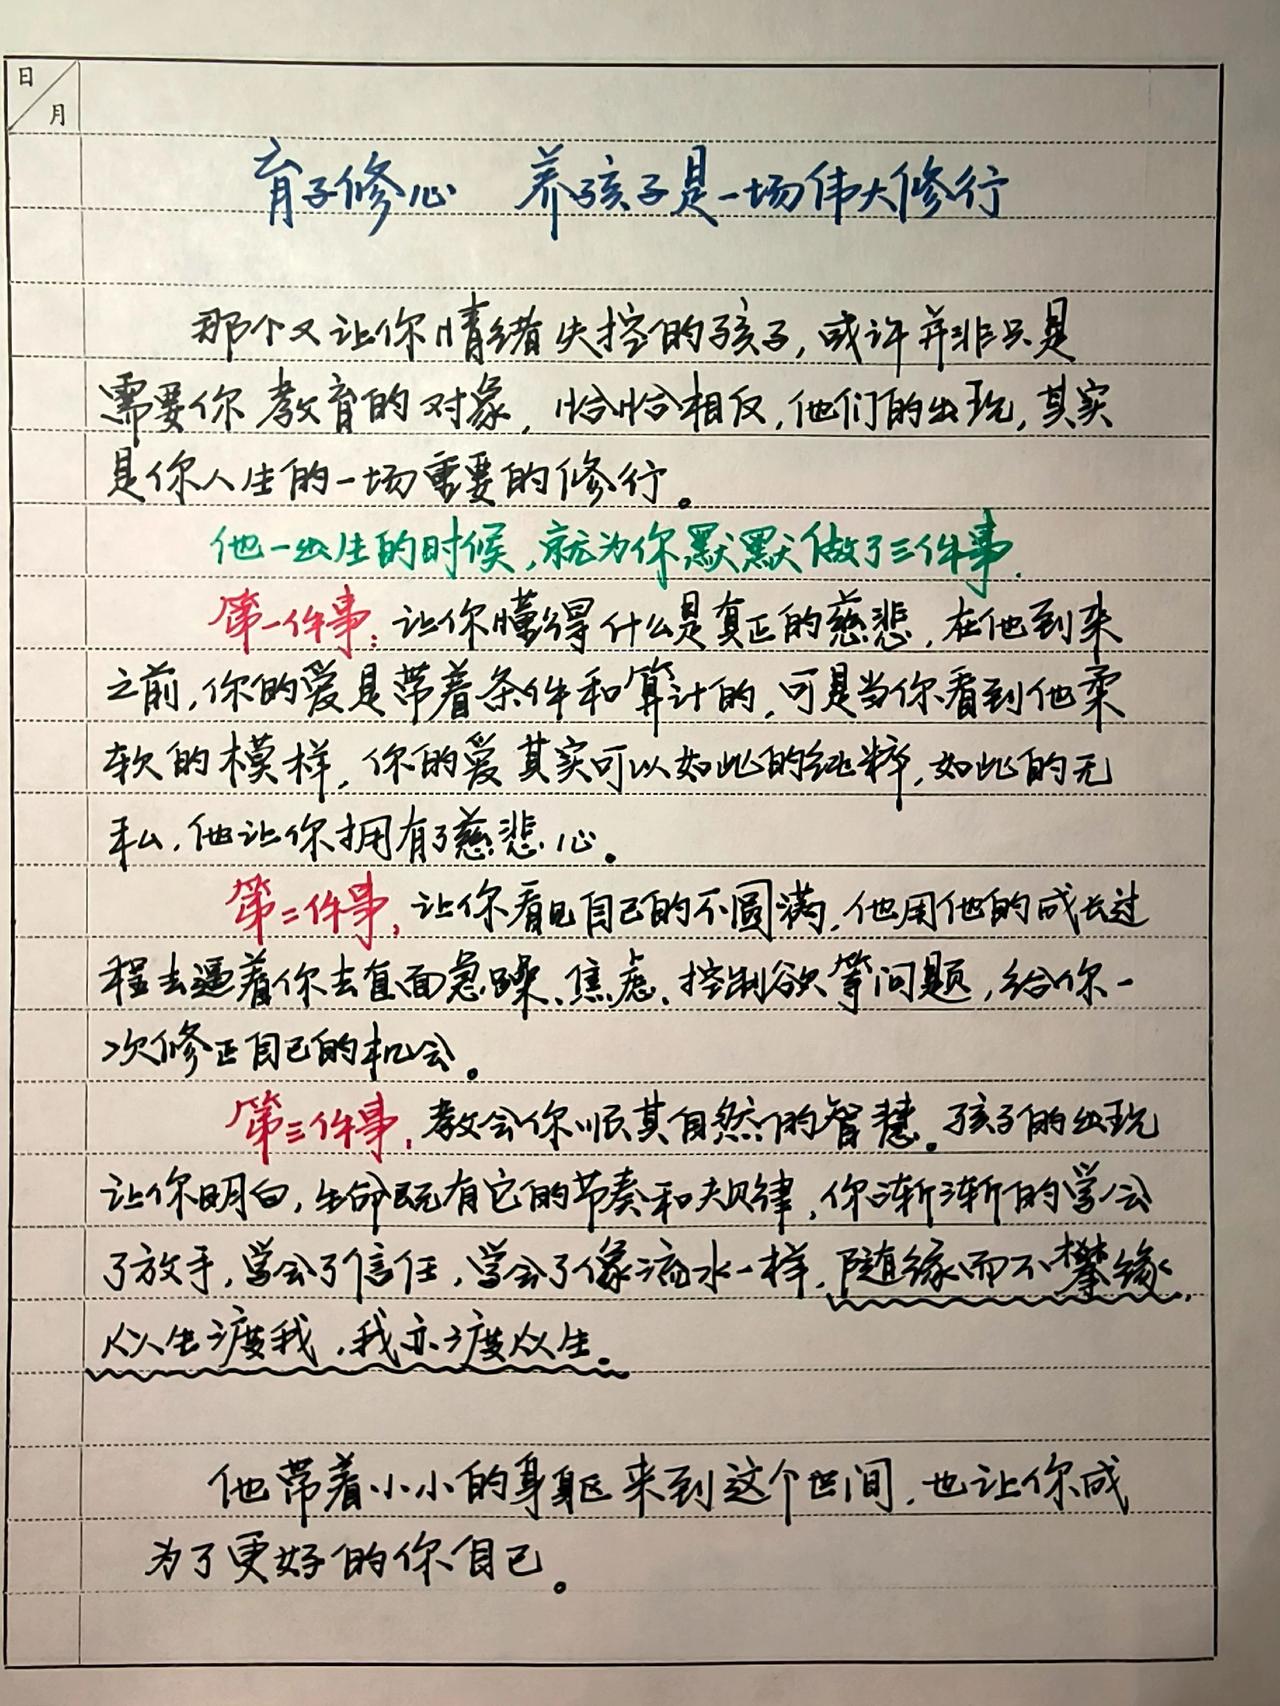 日
月
育子修心 养孩子是一场伟大修行
那个又让你情绪失控的孩子,或许并非只是
需要你教育的对象,恰恰相反,他们的出现,其实
是你人生的一场重要的修行。
他一出生的时候,就为你默默做了三件事.
第一件事:让你懂得什么是真正的慈悲,在他到来
之前,你的爱是带着条件和算计的,可是当你看到他柔
软的模样,你的爱其实可以如此的纯粹,如此的无
私,他让你拥有了慈悲心。
第二件事,让你看见自己的不圆满,他用他的成长过
程去逼着你去直面急躁、焦虑、控制欲等问题,给你一
次修正自己的机会。
第三件事,教会你顺其自然的智慧。孩子的出现
让你明白,生命既有它的节奏和规律,你渐渐的学会
了放手,学会了信任,学会了像流水一样,随缘而不攀缘,
众生渡我,我亦渡众生。
他带着小小的身躯来到这个世间,也让你成
为了更好的你自己。